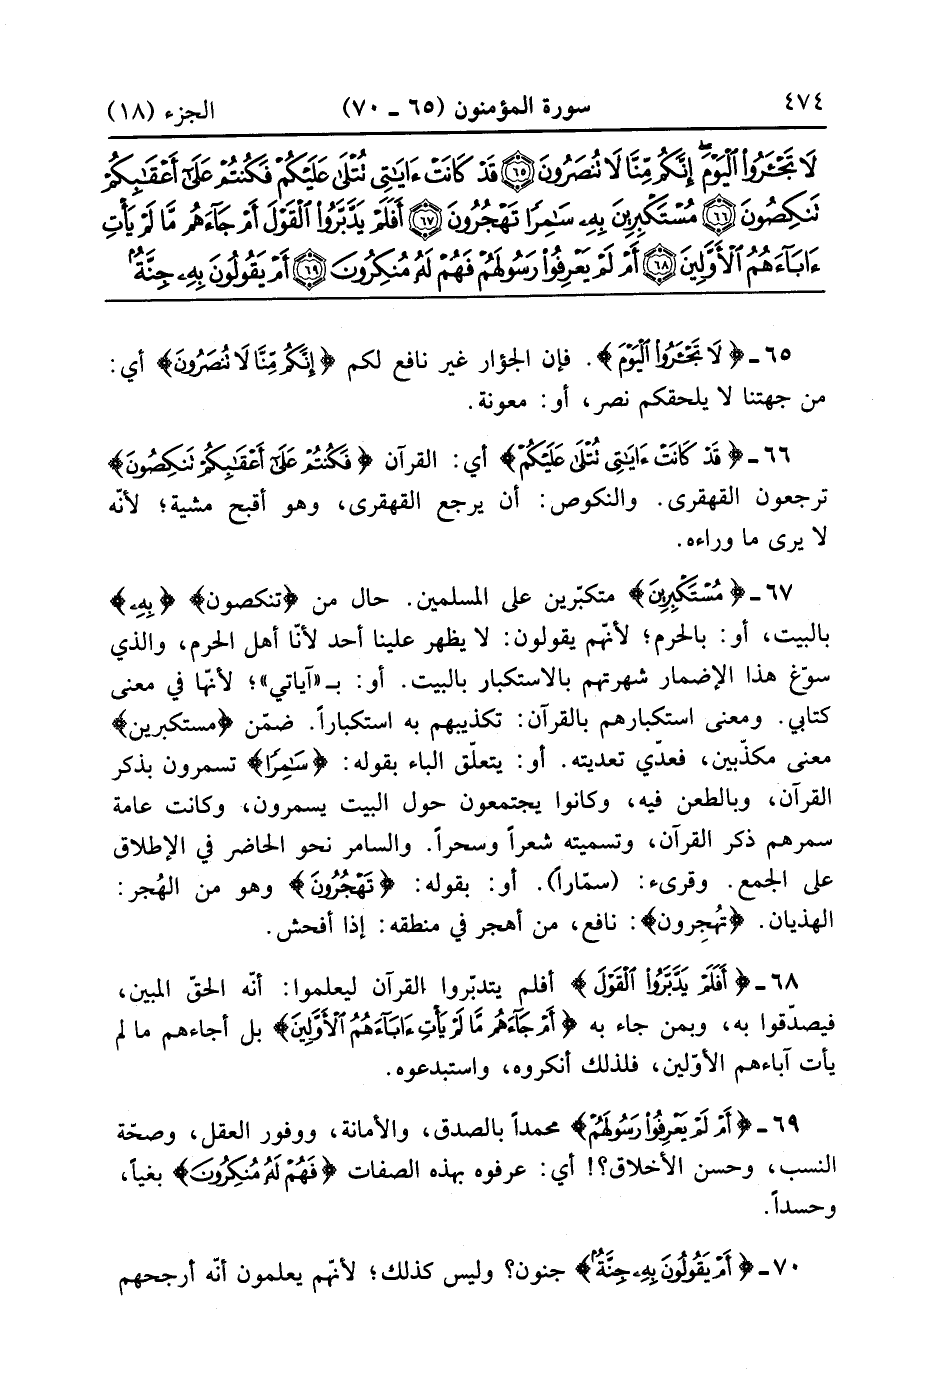 ٤٧٤ سورة المؤمنون (٦٥ - ٧٠) الجزء (١٨)
لَا تَجْـَٔرُوا۟ ٱلْيَوْمَ ۖ إِنَّكُم مِّنَّا لَا تُنصَرُونَ ﴿٦٥﴾ قَدْ كَانَتْ ءَايَـٰتِى تُتْلَىٰ عَلَيْكُمْ فَكُنتُمْ عَلَىٰٓ أَعْقَـٰبِكُمْ
تَنكِصُونَ ﴿٦٦﴾ مُسْتَكْبِرِينَ بِهِۦ سَـٰمِرًا تَهْجُرُونَ ﴿٦٧﴾ أَفَلَمْ يَدَّبَّرُوا۟ ٱلْقَوْلَ أَمْ جَآءَهُم مَّا لَمْ يَأْتِ
ءَابَآءَهُمُ ٱلْأَوَّلِينَ ﴿٦٨﴾ أَمْ لَمْ يَعْرِفُوا۟ رَسُولَهُمْ فَهُمْ لَهُۥ مُنكِرُونَ ﴿٦٩﴾ أَمْ يَقُولُونَ بِهِۦ جِنَّةٌۢ
٦٥ - ﴿لَا تَجْـَٔرُوا۟ ٱلْيَوْمَ﴾. فإن الجؤار غير نافع لكم ﴿إِنَّكُم مِّنَّا لَا تُنصَرُونَ﴾ أي:
من جهتنا لا يلحقكم نصر، أو: معونة.
٦٦ - ﴿قَدْ كَانَتْ ءَايَـٰتِى تُتْلَىٰ عَلَيْكُمْ﴾ أي: القرآن ﴿فَكُنتُمْ عَلَىٰٓ أَعْقَـٰبِكُمْ تَنكِصُونَ﴾
ترجعون القهقرى. والنكوص: أن يرجع القهقرى، وهو أقبح مشية؛ لأنّه
لا يرى ما وراءه.
٦٧ - ﴿مُسْتَكْبِرِينَ﴾ متكبّرين على المسلمين. حال من ﴿تنكصون﴾ ﴿بِهِۦ﴾
بالبيت، أو: بالحرم؛ لأنهم يقولون: لا يظهر علينا أحد لأنّا أهل الحرم، والذي
سوّغ هذا الإضمار شهرتهم بالاستكبار بالبيت. أو: بـ «آياتي»؛ لأنهّا في معنى
كتابي. ومعنى استكبارهم بالقرآن: تكذيبهم به استكباراً. ضمّن ﴿مستكبرين﴾
معنى مكذّبين، فعدّي تعديته. أو: يتعلّق الباء بقوله: ﴿سَـٰمِرًا﴾ تسمرون بذكر
القرآن، وبالطعن فيه، وكانوا يجتمعون حول البيت يسمرون، وكانت عامة
سمرهم ذكر القرآن، وتسميته شعراً وسحراً. والسامر نحو الحاضر في الإطلاق
على الجمع. وقرىء: (سمّاراً). أو: بقوله: ﴿تَهْجُرُونَ﴾ وهو من الهُجر:
الهذيان. ﴿تُهجِرون﴾: نافع، من أهجر في منطقه: إذا أفحش.
٦٨ - ﴿أَفَلَمْ يَدَّبَّرُوا۟ ٱلْقَوْلَ﴾ أفلم يتدبّروا القرآن ليعلموا: أنّه الحقّ المبين،
فيصدّقوا به، وبمن جاء به ﴿أَمْ جَآءَهُم مَّا لَمْ يَأْتِ ءَابَآءَهُمُ ٱلْأَوَّلِينَ﴾ بل أجاءهم ما لم
يأت آباءهم الأوّلين، فلذلك أنكروه، واستبدعوه.
٦٩ - ﴿أَمْ لَمْ يَعْرِفُوا۟ رَسُولَهُمْ﴾ محمداً بالصدق، والأمانة، ووفور العقل، وصحّة
النسب، وحسن الأخلاق؟! أي: عرفوه بهذه الصفات ﴿فَهُمْ لَهُۥ مُنكِرُونَ﴾ بغياً،
وحسداً.
٧٠ - ﴿أَمْ يَقُولُونَ بِهِۦ جِنَّةٌۢ﴾ جنون؟ وليس كذلك؛ لأنهم يعلمون أنّه أرجحهم